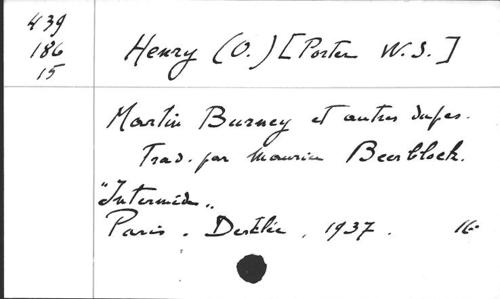 439
186
15
Henry (O.) [Porter W.S.]
Martin Burney et autres dupes.
Trad. par Maurice Beerblock.
"Intermède"
Paris. Desclée, 1937. 16°